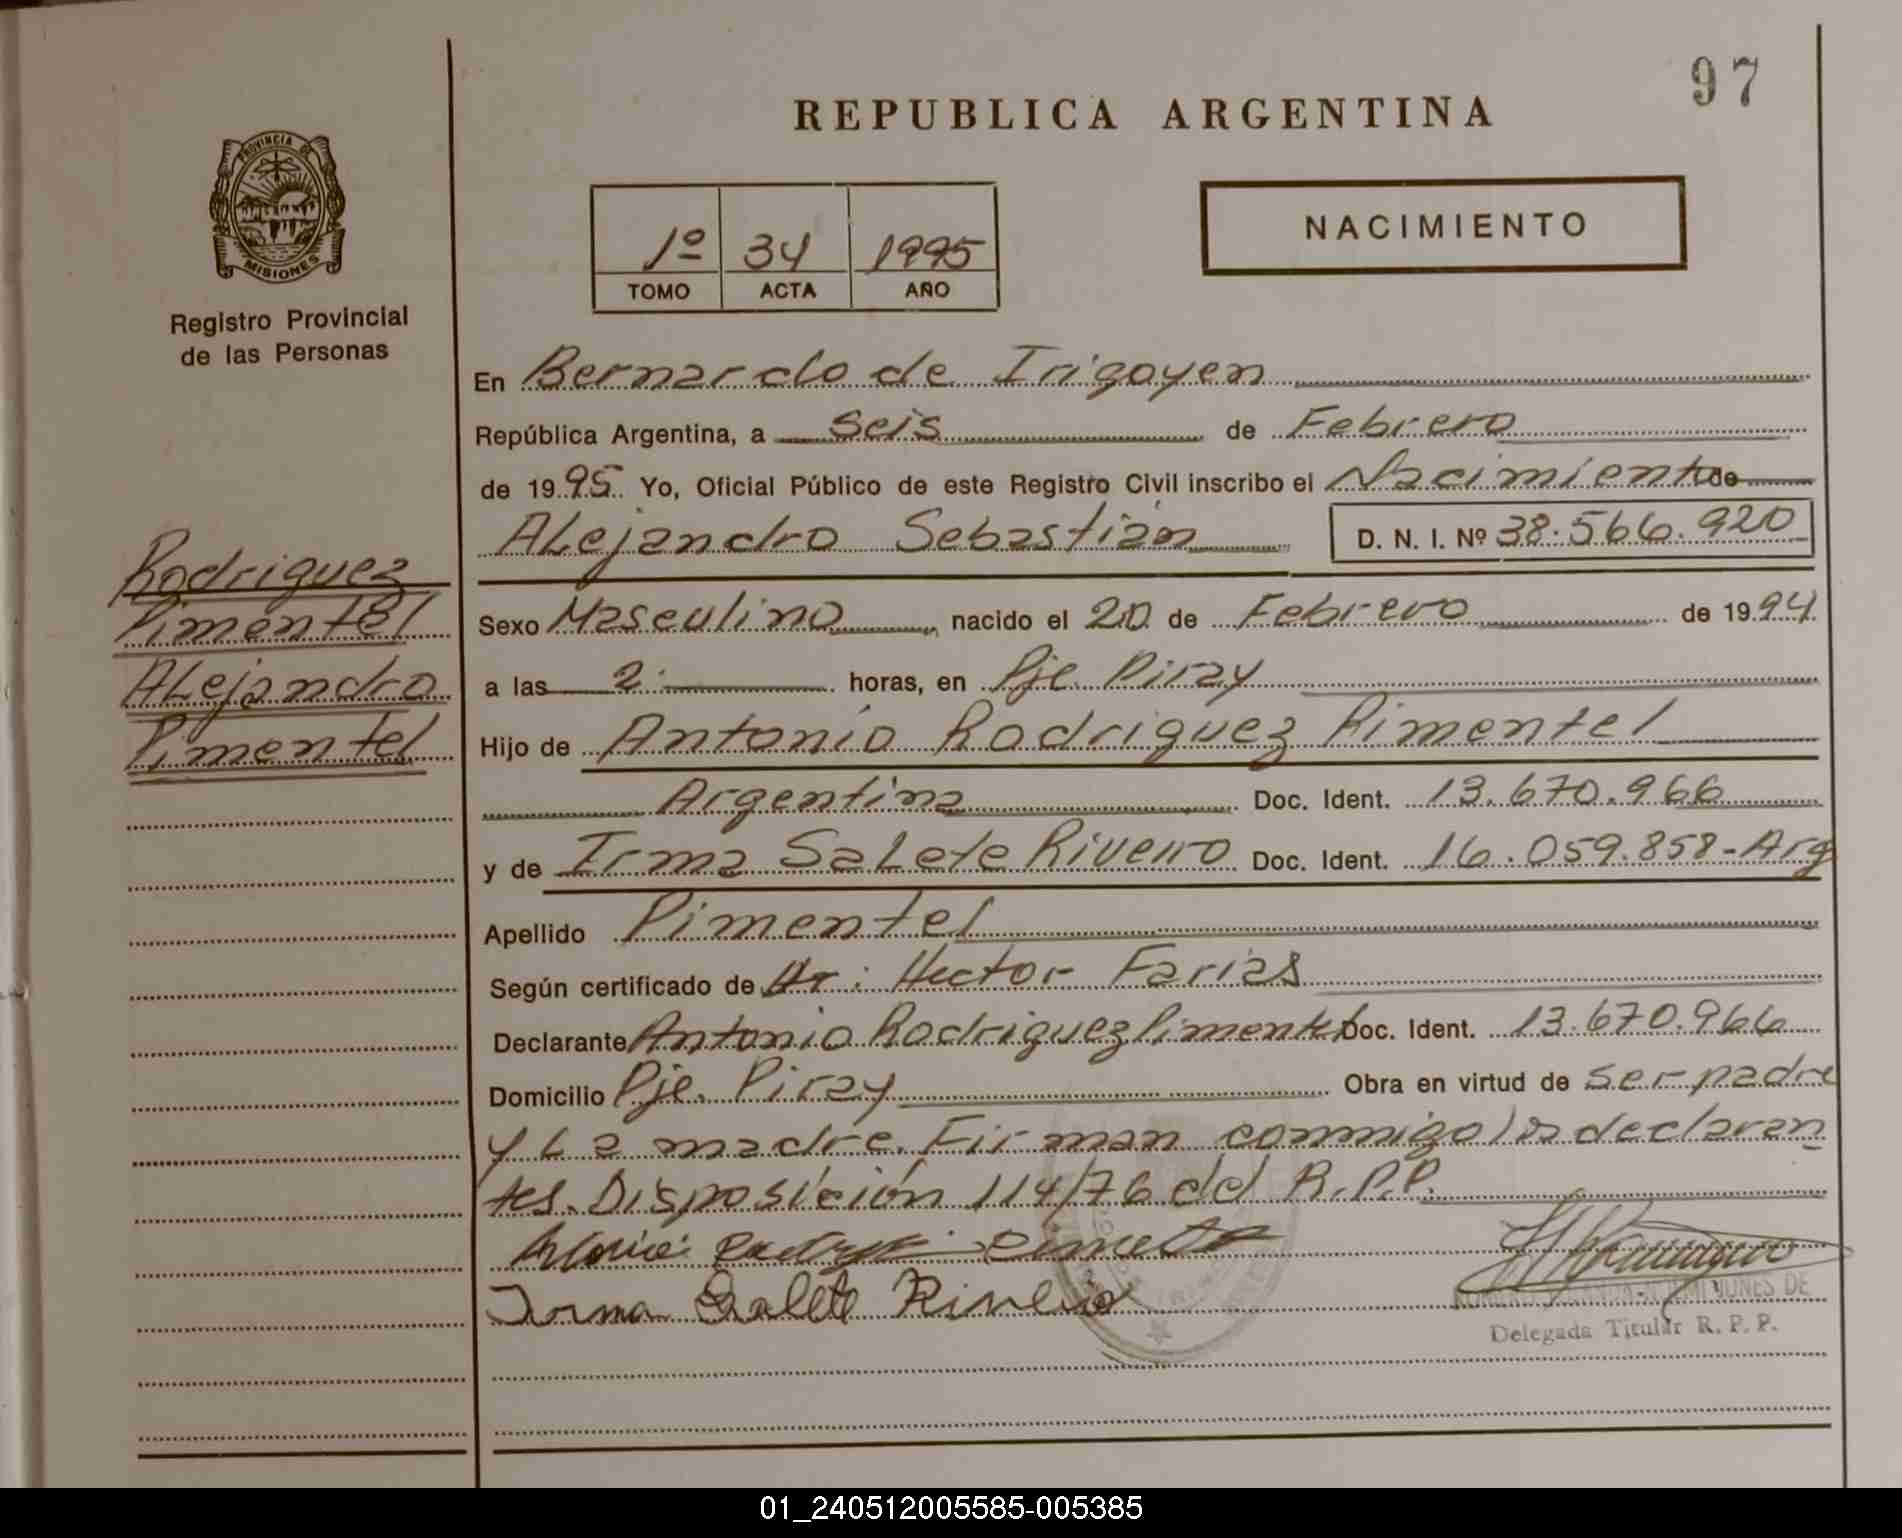 97
REPUBLICA ARGENTINA
PROVINCIA DE
MISIONES
Registro Provincial
de las Personas
NACIMIENTO
1º 34 1995
TOMO ACTA AÑO
En Bernardo de Irigoyen
República Argentina, a seis de Febrero
de 1995 Yo, Oficial Público de este Registro Civil inscribo el Nacimiento de
Alejandro Sebastián D. N. I. Nº 38.566.920
Rodriguez
Pimentel
Alejandro
Pimentel
Sexo Masculino nacido el 20 de Febrero de 1994
a las 2 horas, en Pje Piray
Hijo de Antonio Rodriguez Pimentel
Argentina Doc. Ident. 13.670.966
y de Irma Salete Riveiro Doc. Ident. 16.059.858-Arg
Apellido Pimentel
Según certificado de Dr: Hector Farias
Declarante Antonio Rodriguez Pimentel Doc. Ident. 13.670.966
Domicilio Pje. Piray Obra en virtud de ser padre
y la madre. Firman conmigo los declaran
tes. Disposición 114/76 del R.P.P.
Irma Salete Riveiro
Delegada Titular R. P. P.
01_240512005585-005385